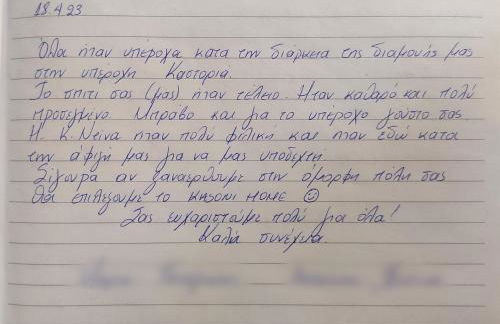 18.4.23
Όλα ήταν υπέροχα κατα την διάρκεια της διαμονής μας
στην υπέροχη Καστοριά.
Το σπίτι σας (μας) ήταν τέλειο. Ήταν καθαρό και πολύ
προσεγμένο. Μπράβο και για το υπέροχο γούστο σας.
Η κ. Ντίνα ήταν πολύ φιλική και ήταν εδώ κατα
την άφιξή μας για να μας υποδεχτή.
Σίγουρα αν ξαναέρθουμε στην όμορφη πόλη σας
θα επιλέξουμε το KHSONI HOME ☺
Σας ευχαριστούμε πολύ για όλα!
Καλή συνέχεια.